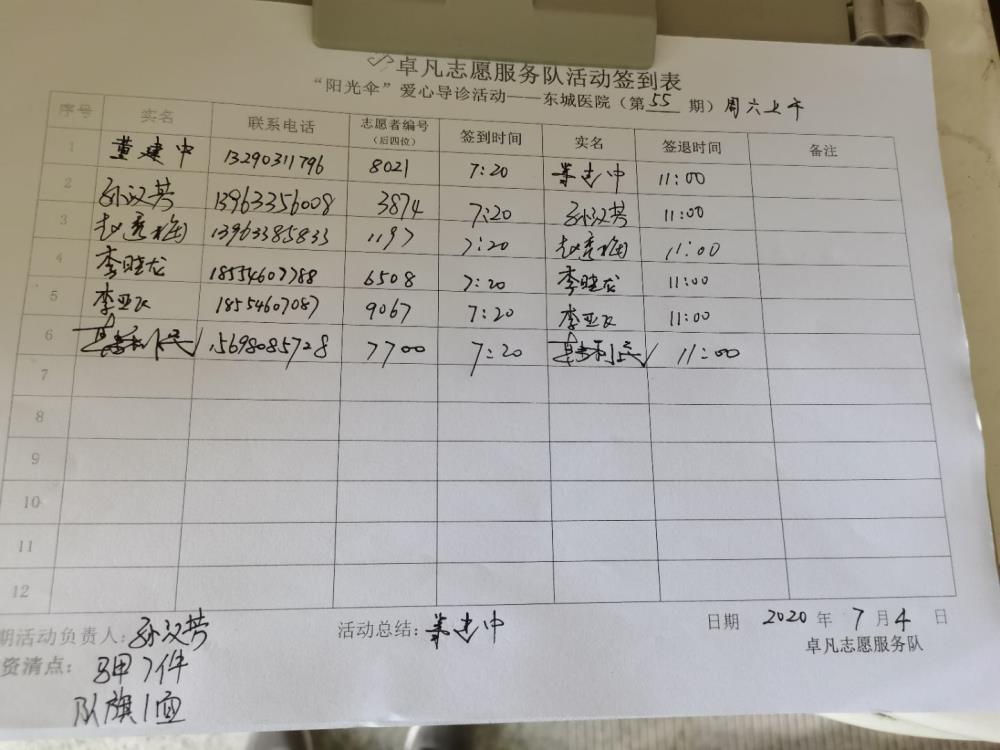 卓凡志愿服务队活动签到表
“阳光伞”爱心导诊活动——东城医院（第55期）周六上午
序号 实名 联系电话 志愿者编号（后四位） 签到时间 实名 签退时间 备注
1 董建中 13290311796 8021 7:20 董建中 11:00
2 孙汉芳 13963356008 3874 7:20 孙汉芳 11:00
3 赵秀梅 13963385833 1197 7:20 赵秀梅 11:00
4 李晓龙 18554607788 6508 7:20 李晓龙 11:00
5 李亚飞 18554607087 9067 7:20 李亚飞 11:00
6 15698085728 7700 7:20 11:00
7
8
9
10
11
12
期活动负责人：孙汉芳 活动总结：董建中 日期 2020 年 7 月 4 日
资清点：马甲7件 卓凡志愿服务队
队旗1面